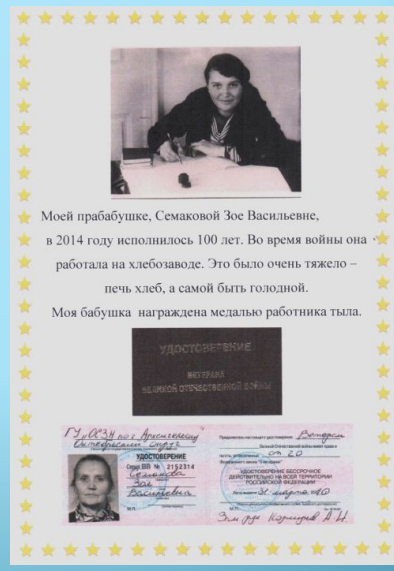 Моей прабабушке, Семаковой Зое Васильевне,
в 2014 году исполнилось 100 лет. Во время войны она
работала на хлебозаводе. Это было очень тяжело –
печь хлеб, а самой быть голодной.
Моя бабушка награждена медалью работника тыла.
УДОСТОВЕРЕНИЕ
ВЕТЕРАНА
ВЕЛИКОЙ ОТЕЧЕСТВЕННОЙ ВОЙНЫ
ГУ "ОСЗН по г. Архангельску
Октябрьский округ
УДОСТОВЕРЕНИЕ
Серия ВВ № 2152314
Семакова
Зоя
Васильевна
М.П.
Предъявитель настоящего удостоверения Ветеран
Великой Отечественной войны имеет право на
ст 20
УДОСТОВЕРЕНИЕ БЕССРОЧНОЕ
ДЕЙСТВИТЕЛЬНО НА ВСЕЙ ТЕРРИТОРИИ
РОССИЙСКОЙ ФЕДЕРАЦИИ
31 марта
М.П.